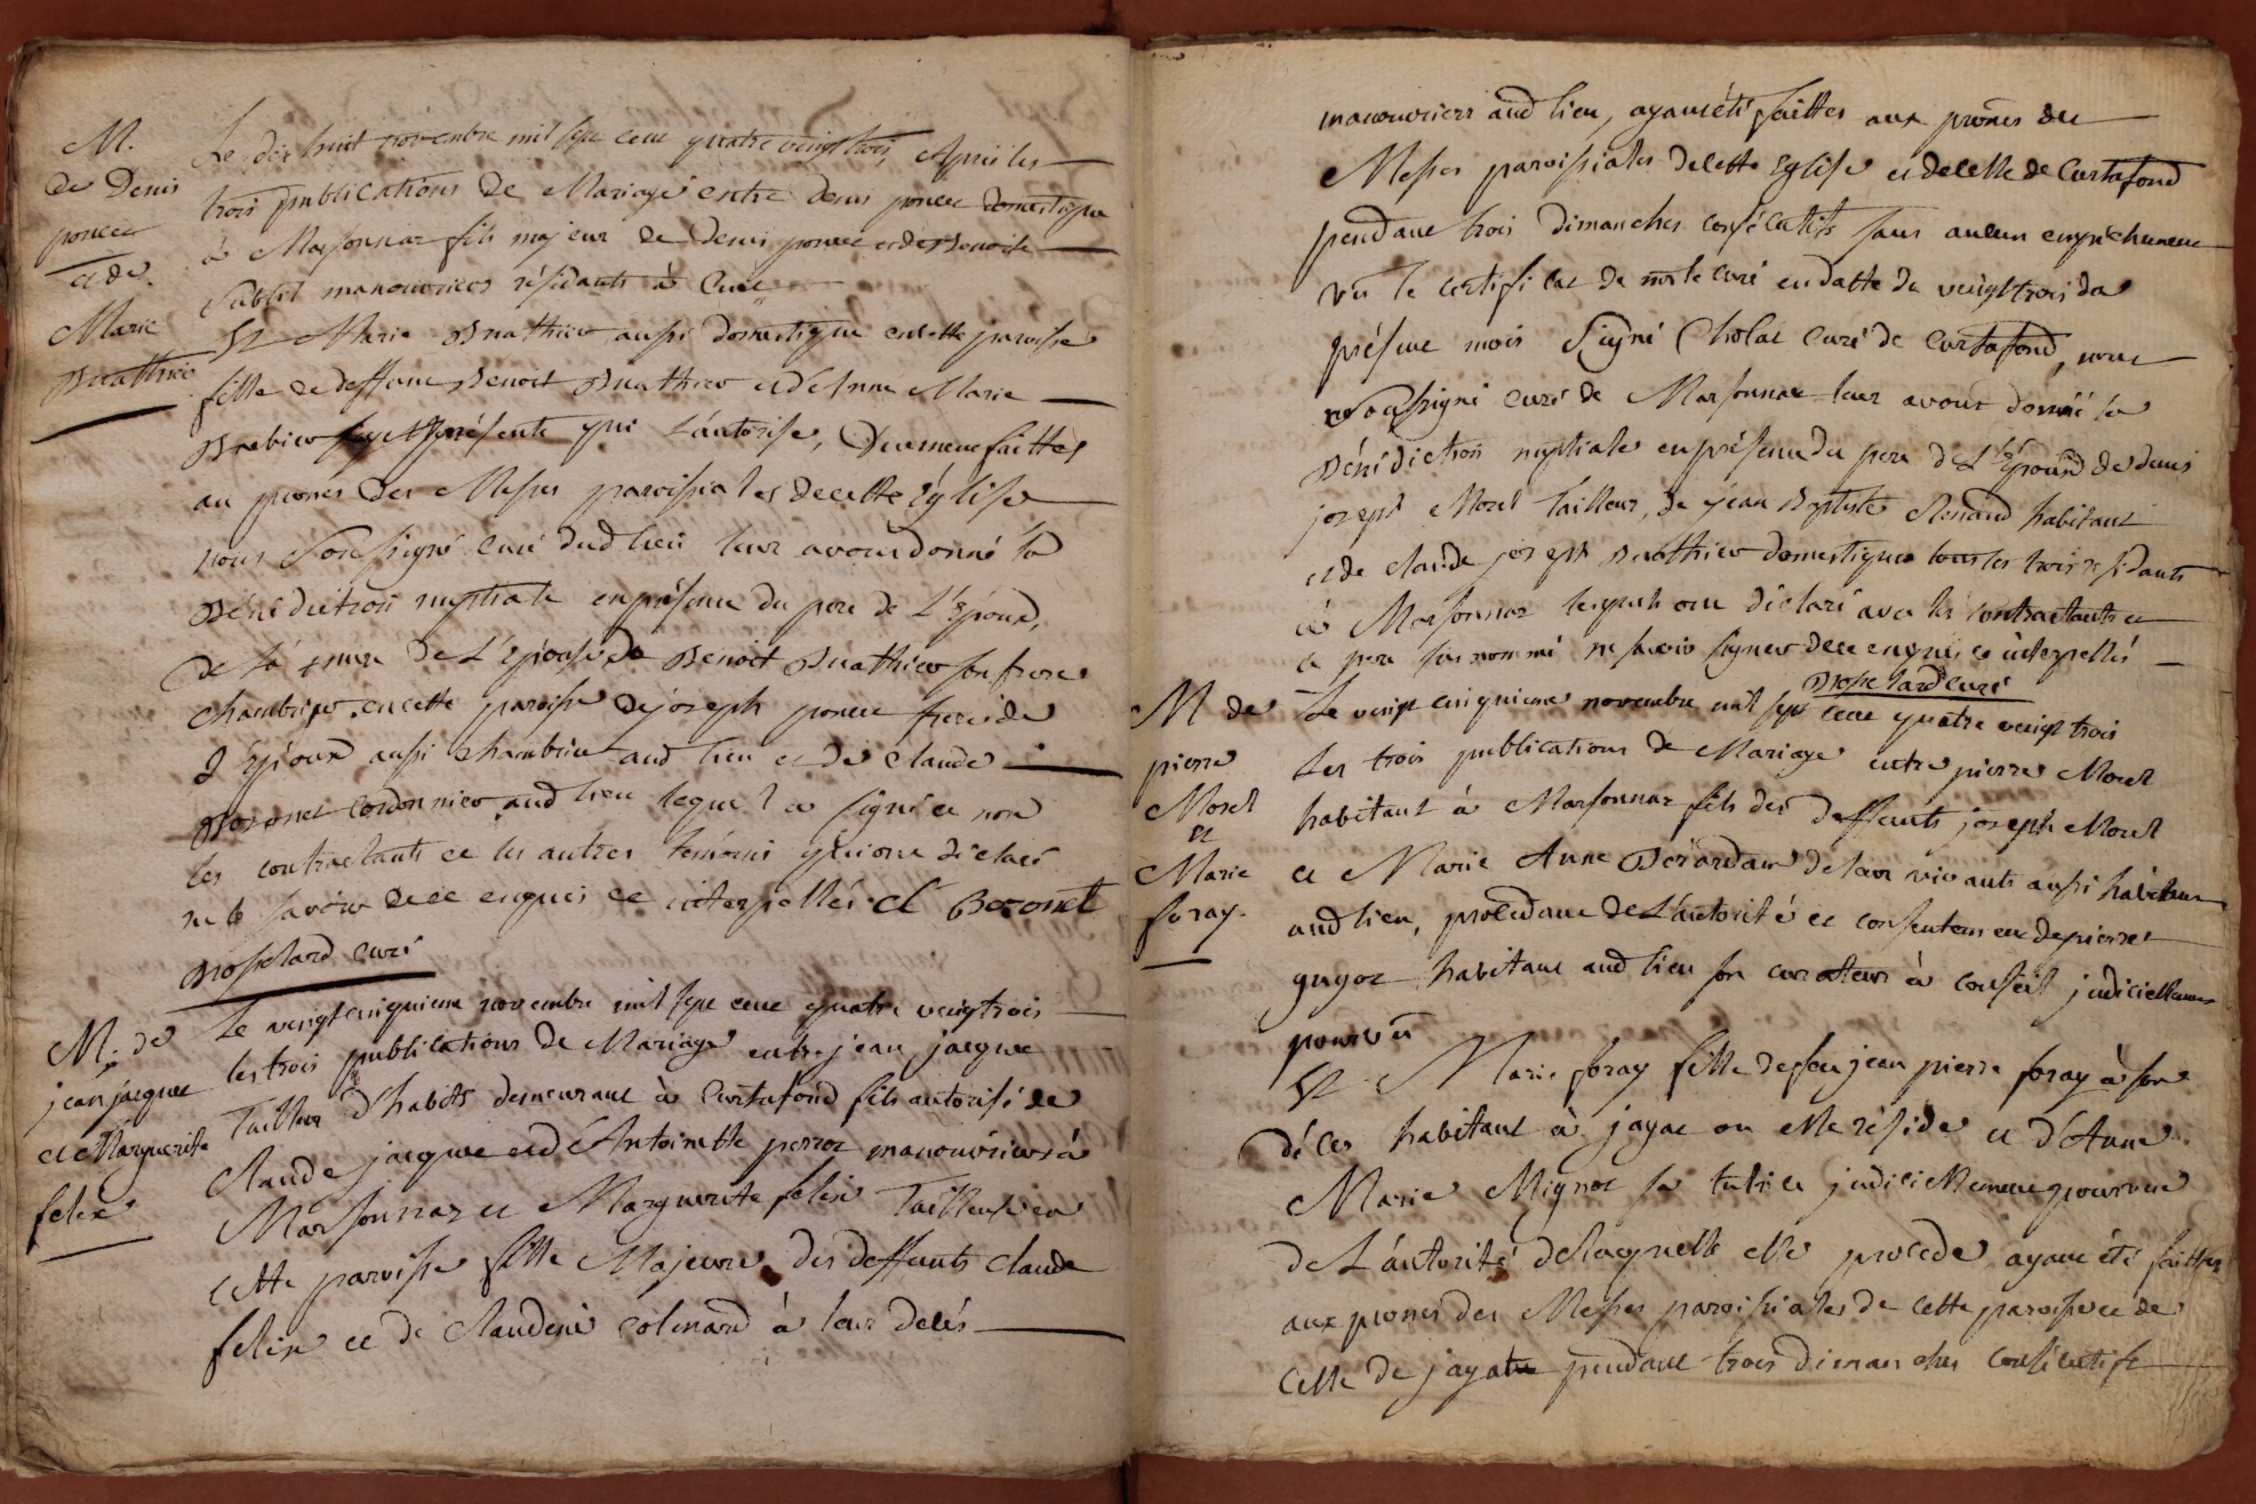 M.
de Denis
poncet
et de
Marie
Buathier
Le dix huit novembre mil sept cent quatre vingt trois, après les
trois publications de Mariage entre denis poncet domestique
à Marsonnaz fils majeur de denis poncet et de Benoite
Sublet manouvriers résidants à Cuet
Et Marie Buathier aussi domestique en cette paroisse
fille de deffunt Benoit Buathier et d'Anne Marie
Brebier présente qui L'autorise, Duement faittes
au prones des Messes paroissiales de cette Eglise
nous Soussigné curé dud lieu leur avons donné la
Bénédiction nuptiale en présence du pere de L'Epoux,
de la mere de L'Epouse de Benoit Buathier son frere
chambrier en cette paroisse de joseph poncet frere de
L'Epoux aussi chambrier aud lieu et de Claude
Bozonet cordonnier aud lieu lequel a signé et non
les contractants et les autres témoins qui ont déclaré
ne le savoir de ce enquis et interpellés. Cl Bozonet
Brosselard curé
M. de
jean jacque
et Marguerite
felix
Le vingt cinquieme novembre mil sept cent quatre vingt trois
les trois publications de Mariage entre jean jacque
Tailleur d'habits demeurant à Curtafond fils autorisé de
Claude jacque et d'Antoinette perroz manouvriers à
Marsonnaz et Marguerite felix Tailleuse en
cette paroisse fille Majeure des deffunts Claude
felix et de Claudine colinard à leur decés
manouvriers aud lieu, ayant été faittes aux prones des
Messes paroissiales de cette Eglise et de celle de Curtafond
pendant trois dimanches consécutifs sans aucun empêchement
vu le certificat de mr le curé en datte du vingt trois du
présent mois Signé Cholat curé de Curtafond, nous
Soussigné curé de Marsonnaz leur avons donné la
Bénédiction nuptiale en présence du pere de L'Epoux de deus
joseph Morel Tailleur, de jean Baptiste Renaud habitant
et de claude joseph Buathier domestique tous les trois résidants
à Marsonnaz lesquels ont déclaré avec les contractants et
le pere sus nommé ne savoir signer de ce enquis et interpellés
Brosselard curé
M de
pierre
Morel
et
Marie
foray.
Le vingt cinquieme novembre mil sept cent quatre vingt trois
Les trois publications de Mariage entre pierre Morel
habitant à Marsonnaz fils des deffunts joseph Morel
et Marie Anne Berardan de leur vivants aussi habitans
aud lieu, procedant de L'autorité et consentement de pierre
guyoz habitant aud lieu son curateur à conseil judiciellement
pourvu
Et Marie foray fille de feu jean pierre foray à son
décès habitant à jayat ou elle réside et d'Anne
Marie Mignot sa tutrice judiciellement pourvue
de L'autorité de laquelle elle procede ayant été faittes
aux prones des Messes paroissiales de cette paroisse et de
celle de jayat pendant trois dimanches consécutifs